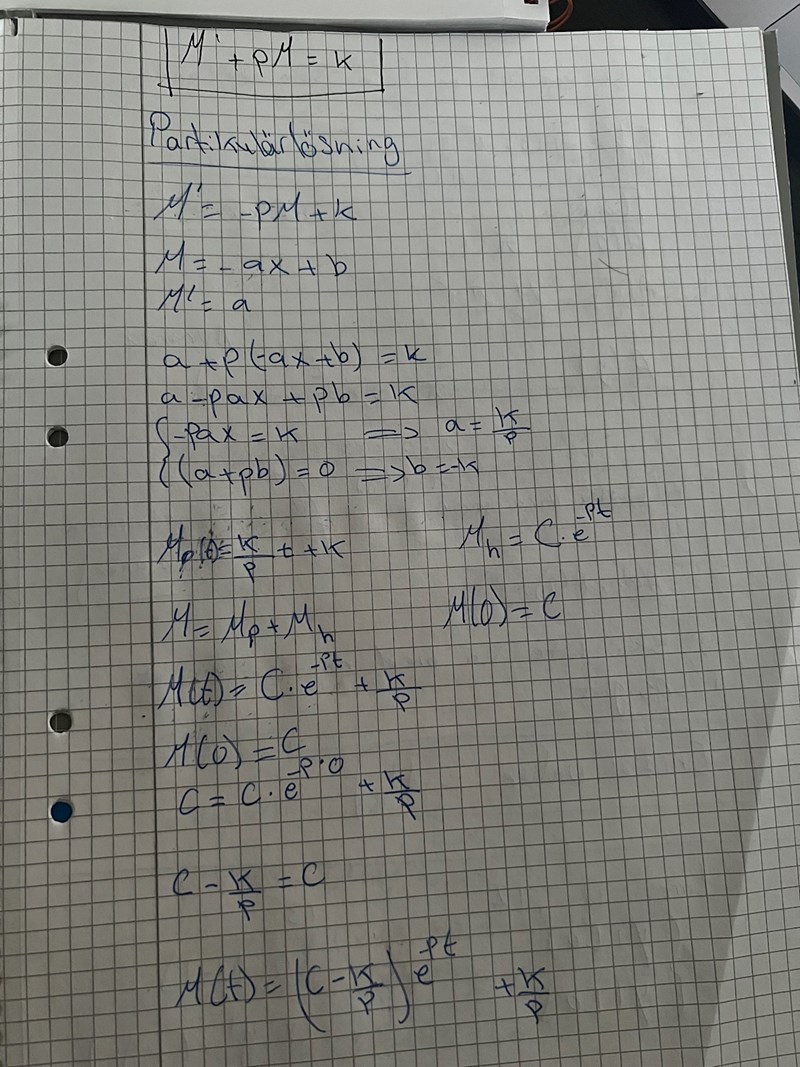 M' + pM = k
Partikulärlösning
M' = -pM + k
M = -ax + b
M' = a
a + p(-ax+b) = k
a - pax + pb = k
{-pax = k => a = k/p
{(a+pb) = 0 => b = -k
Mp(t) = k/p t + k Mh = C · e^-pt
M = Mp + Mh M(0) = C
M(t) = C · e^-pt + k/p
M(0) = C
C = C · e^-p·0 + k/p
C - k/p = C
M(t) = (C - k/p) e^-pt + k/p